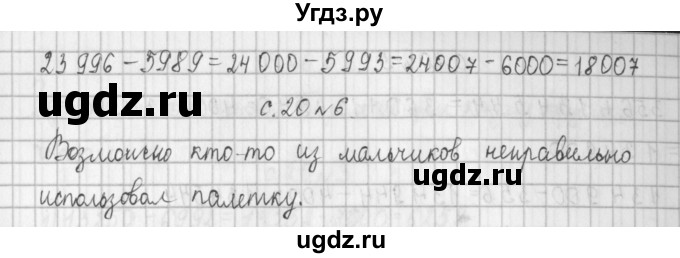 Угдз.ру
23 996 – 5989 = 24 000 – 5993 = 24007 – 6000 = 18007
ugdz.ru
с. 20 № 6
ugdz.ru
Возможно кто-то из мальчиков неправильно
использовал палетку.
ugdz.ru
ugdz.ru